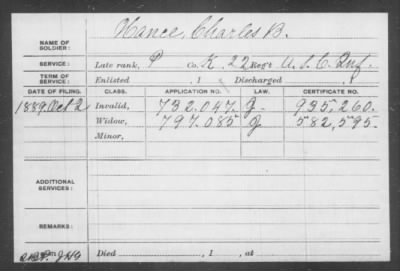 NAME OF SOLDIER: Hance, Charles B.
SERVICE: Late rank, P Co. K, 22 Reg't U.S.C. Inf.
TERM OF SERVICE: Enlisted , 1 Discharged , 1
DATE OF FILING. CLASS. APPLICATION NO. LAW. CERTIFICATE NO.
1889. Oct 2 Invalid, 732.047. J. 935,260.
Widow, 797.085 J 582,595.
Minor,
ADDITIONAL SERVICES:
REMARKS:
Died , 1 , at